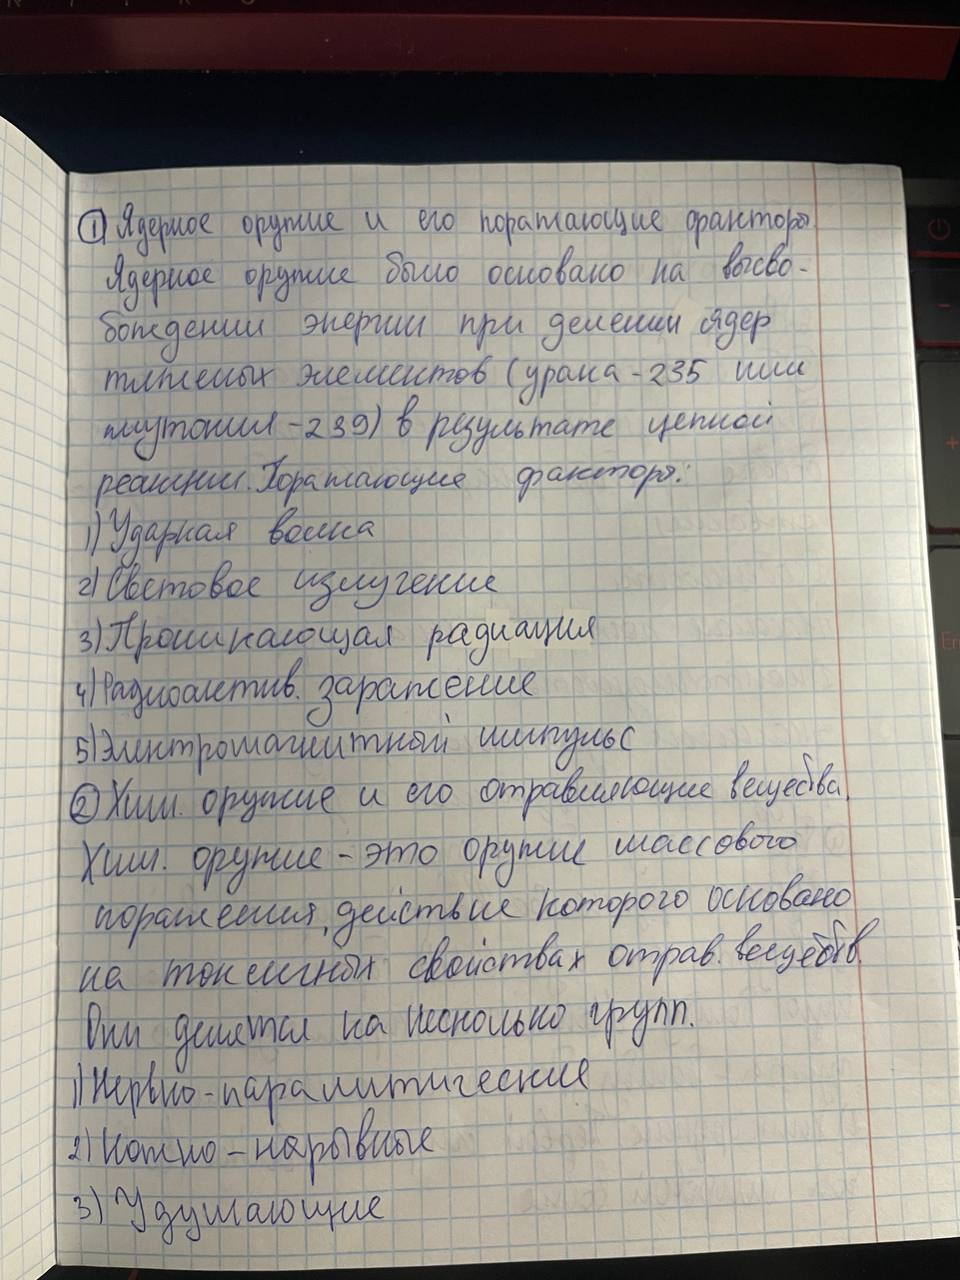 ① Ядерное оружие и его поражающие факторы.
Ядерное оружие было основано на высво-
бождении энергии при делении ядер
тяжелых элементов (урана-235 или
плутония-239) в результате цепной
реакции. Поражающие факторы:
1) Ударная волна
2) Световое излучение
3) Проникающая радиация
4) Радиоактив. заражение
5) Электромагнитный импульс
② Хим. оружие и его отравляющие вещества.
Хим. оружие - это оружие массового
поражения, действие которого основано
на токсичных свойствах отрав. веществ.
Они делятся на несколько групп.
1) Нервно-паралитические
2) Кожно-нарывные
3) Удушающие